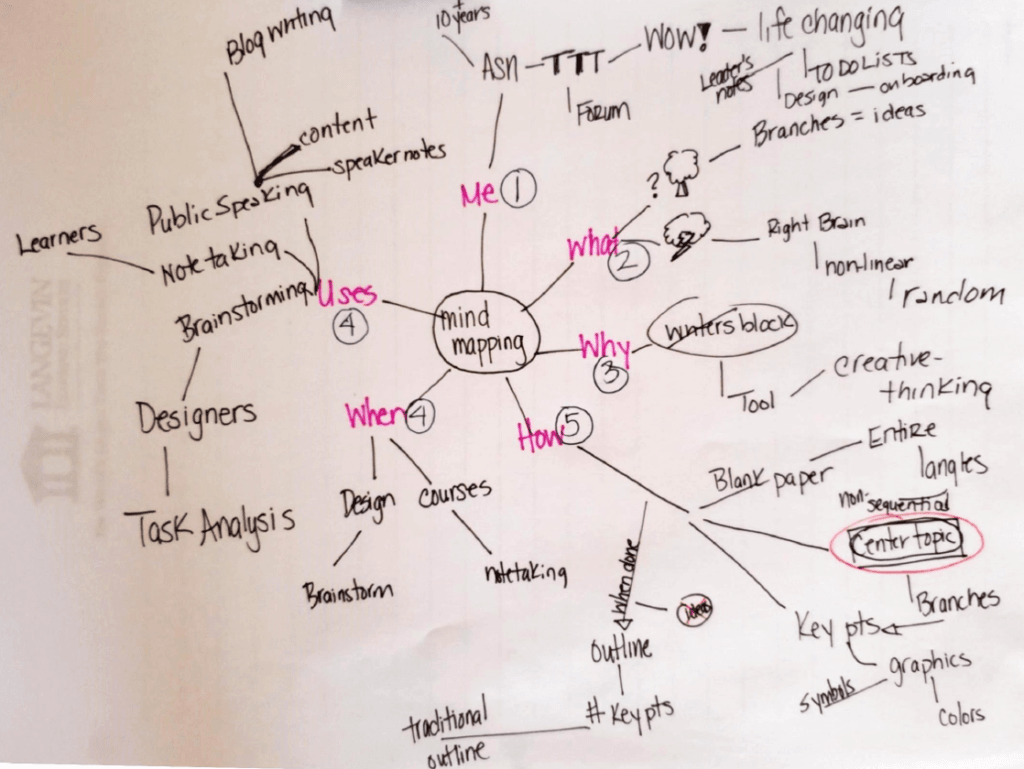 mind
mapping
Me 1
Asn
10+ years
TTT
Forum
WOW!
life changing
Leader's
notes
TO DO LISTS
Design — onboarding
What
2
?
Branches = ideas
Right Brain
non-linear
random
Why
3
writers block
Tool
creative-
thinking
How 5
Blank paper
Entire
langles
non-sequential
Center topic
Branches
Key pts
graphics
symbols
colors
When done
outline
# Key pts
traditional
outline
When 4
Design
Brainstorm
courses
notetaking
Uses
4
Public Speaking
Blog writing
content
speaker notes
Note taking
Learners
Brainstorming
Designers
Task Analysis
LANGEVIN